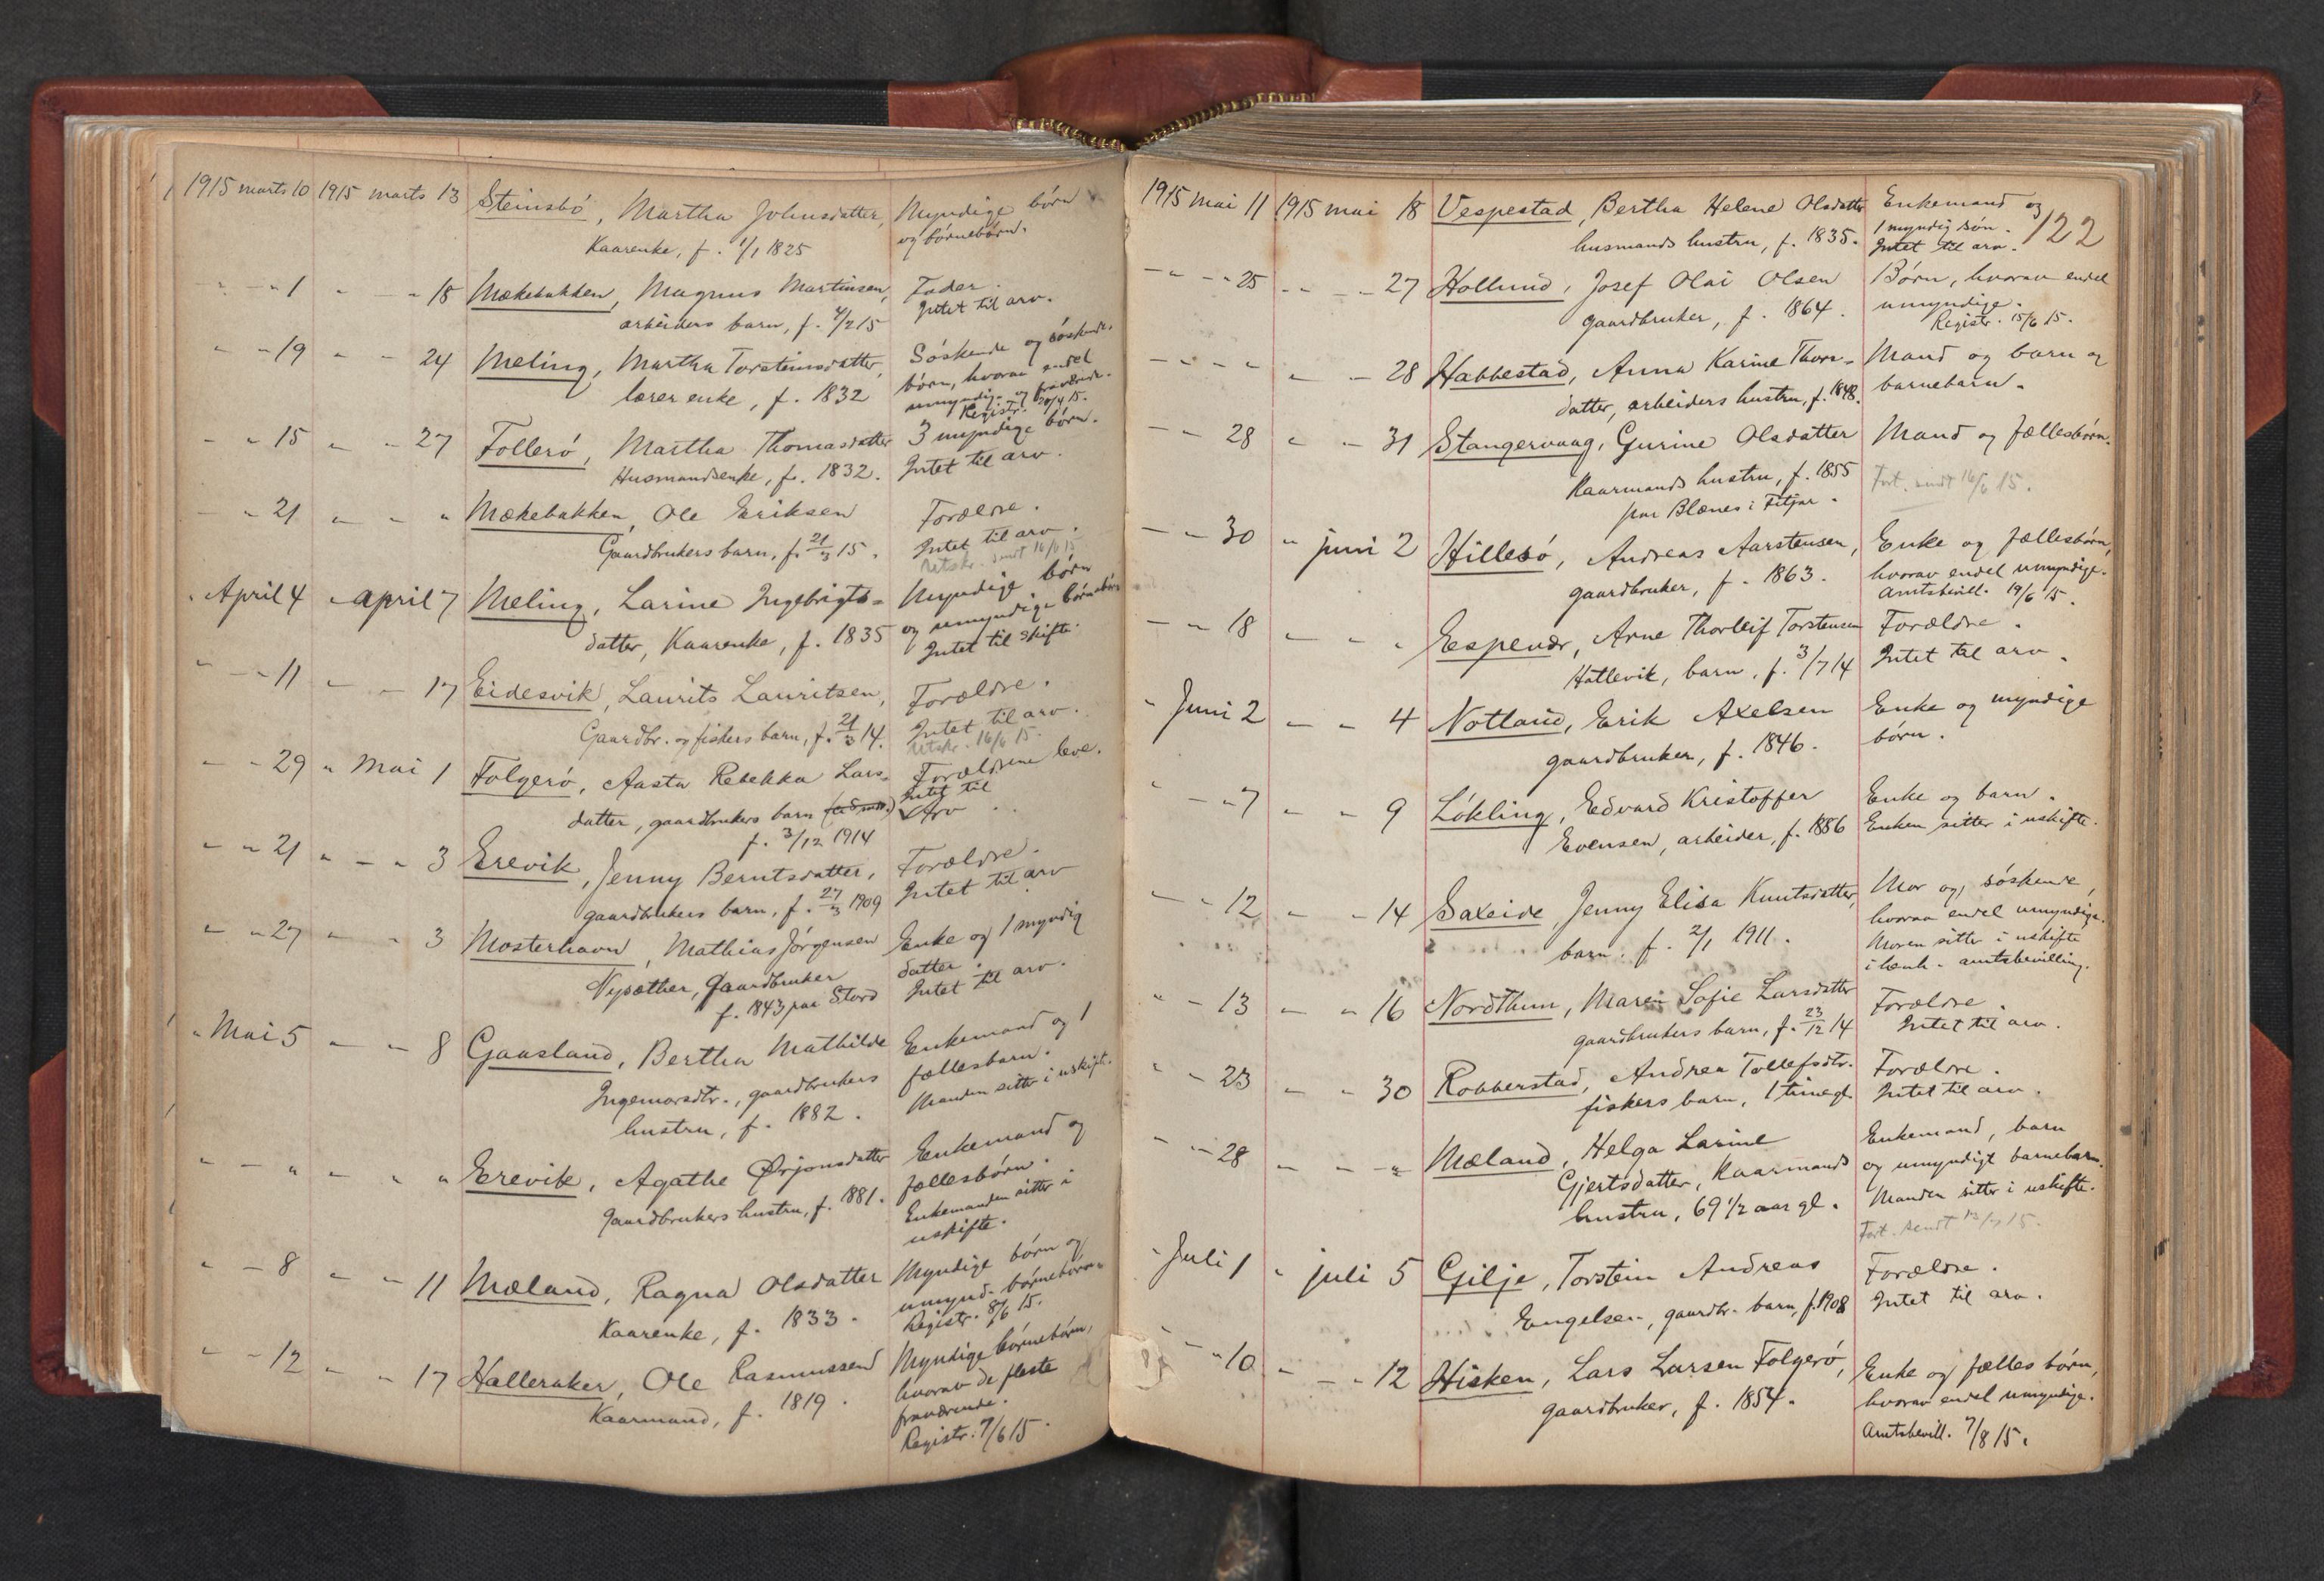 1915 marts 10 1915 marts 13 Steinsbó, Martha Johnsdatter, Myndige børn
Kaarenke, f. 1/1 1825 og børnebørn.
" - 1 " - 18 Mækebakken, Magnus Martinsen, Fader.
arbeiders barn, f. 4/2 15 Intet til arv.
" - 19 " - 24 Meling, Martha Torsteinsdatter, Søskende og søskende-
lærer enke, f. 1832 børn, hvorav endel
umyndige og fraværende.
Registr. 20/4 15.
" - 15 " - 27 Folleró, Martha Thomasdatter 3 myndige børn.
Husmandsenke, f. 1832. Intet til arv.
- " 21 " " " Mækebakken, Ole Eriksen Forældre.
Gaardbrukers barn, f. 21/3 15. Intet til arv.
Utskr. sendt 16/6 15
" April 4 " april 7 Meling, Larine Ingebrigts- Myndige børn
datter, Kaarenke, f. 1835 og umyndige børnebørn
Intet til skifte.
" - 11 " - 17 Eidesvik, Laurits Lauritsen, Forældre.
Gaardbr. og fiskers barn, f. 21/3 14. Intet til arv.
Utskr. 16/6 15.
" - 29 " Mai 1 Folgeró, Aasta Rebekka Lars- Forældrene leve.
datter, gaardbrukers barn Intet til
f. 3/12 1914 Arv
" " 21 " - " 3 Erevik, Jenny Berntsdatter, Forældre.
gaardbrukers barn, f. 27/3 1909 Intet til arv
" " 27 " " 3 Mosterhavn, Mathias Jørgensen Enke og 1 myndig
Nysæther, Gaardbruker datter.
f. 1843 paa Stord Intet til arv.
" Mai 5 - - 8 Gaasland, Bertha Mathilde Enkemand og 1
Ingemarsdtr., gaardbrukers fællesbarn.
hustru, f. 1882. Manden sitter i uskifte.
" - " - " " Erevik, Agathe Ørjansdatter Enkemand og
gaardbrukers hustru, f. 1881. fællesbørn.
Enkemanden sitter i
uskifte.
" - 8 " - 11 Mæland, Ragna Olsdatter Myndige børn og
Kaarenke, f. 1833. umynd. børnebørn.
Registr. 8/6 15.
" - 12 " " 17 Halleraker, Ole Rasmussen Myndige børnebørn,
Kaarmand, f. 1819. hvorav de fleste
fraværende.
Registr. 7/6 15.
122
1915 mai 11 1915 mai 18 Vespestad, Bertha Helene Olsdatter Enkemand og
husmands hustru, f. 1835. 1 myndig søn.
Intet til arv.
- " - 25 " " - - 27 Hollund, Josef Olai Olsen Børn, hvorav endel
gaardbruker, f. 1864. umyndige.
Registr. 15/6 15.
- " - " " - 28 Habbestad, Anna Karine Thors- Mand og barn og
datter, arbeiders hustru, f. 1848. barnebarn.
- - 28 " - 31 Stangervaag, Gurine Olsdatter Mand og fællesbørn.
Kaarmands hustru, f. 1855 Fort. sendt 16/6 15.
paa Blænes i Fitjar.
- " 30 " juni 2 Hillesó, Andreas Aarstensen, Enke og fællesbørn,
gaardbruker, f. 1863. hvorav endel umyndige.
Amtsbevill. 19/6 15.
- " 18 - - " Espevær, Arne Thorleif Torstensen Forældre.
Hatlevik, barn, f. 3/7 14 Intet til arv.
" Juni 2 - - 4 Notland, Erik Axelsen Enke og myndige
gaardbruker, f. 1846. børn.
" - 7 " " 9 Løkling, Edvard Kristoffer Enke og barn.
Evensen, arbeider, f. 1886 Enken sitter i uskifte.
- " 12 " - 14 Saxeide, Jenny Elisa Knutsdatter, Mor og søskende,
barn. f. 2/1 1911. hvorav endel umyndige.
Moren sitter i uskifte
i henh. amtsbevilling.
" - 13 - " 16 Nordthun, Maren Sofie Larsdatter Forældre.
gaardbrukers barn, f. 23/12 14 Intet til arv.
" " 23 - " 30 Robberstad, Andrea Tollefsdtr. Forældre.
fiskers barn, 1 time gl. Intet til arv.
" - 28 - - " Mæland, Helga Larine Enkemand, barn
Gjertsdatter, Kaarmands og umyndigt barnebarn.
hustru, 69 1/2 aar gl. Manden sitter i uskifte.
Fort. sendt 13/7 15.
" Juli 1 " juli 5 Gilje, Torstein Andreas Forældre.
Engelsen, gaardbr. barn, f. 1908 Intet til arv.
" " 10 - - " 12 Hisken, Lars Larsen Folgeró, Enke og fælles børn,
gaardbruker, f. 1854. hvorav endel umyndige.
Amtsbevill. 7/8 15.